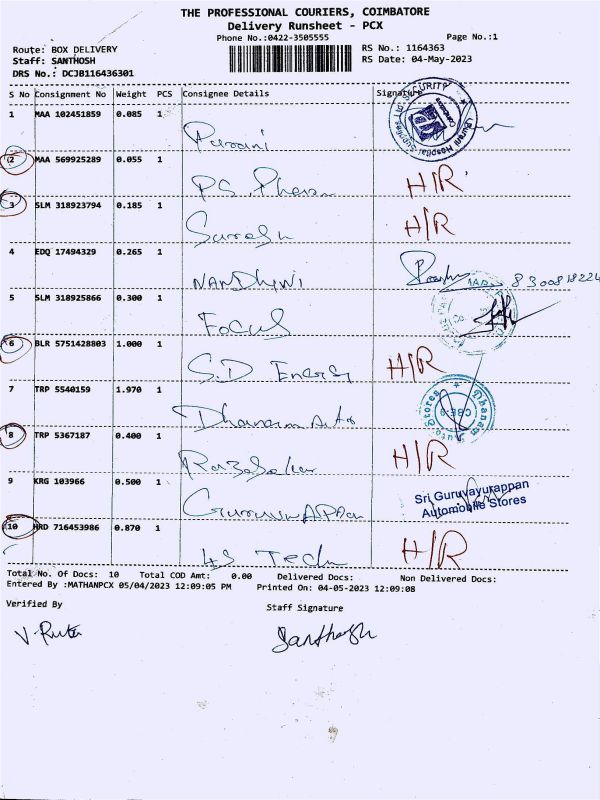 THE PROFESSIONAL COURIERS, COIMBATORE
Delivery Runsheet - PCX
Phone No.:0422-3505555
Page No.:1
Route: BOX DELIVERY
RS No.: 1164363
Staff: SANTHOSH
RS Date: 04-May-2023
DRS No.: DCJB116436301
S No Consignment No Weight PCS Consignee Details Signature
1 MAA 102451859 0.085 1
2 MAA 569925289 0.055 1 H/R
3 SLM 318923794 0.185 1 Suresh H/R
4 EDQ 17494329 0.265 1 NANDHINI 8300818224
5 SLM 318925866 0.300 1 Focus
6 BLR 5751428803 1.000 1 S.D Energy H/R
7 TRP 5540159 1.970 1 Dhanam Auto
8 TRP 5367187 0.400 1 H/R
9 KRG 103966 0.500 1 Sri Guruvayurappan
Automobile Stores
10 HRD 716453986 0.870 1 4S Tech H/R
Total No. Of Docs: 10 Total COD Amt: 0.00 Delivered Docs: Non Delivered Docs:
Entered By :MATHANPCX 05/04/2023 12:09:05 PM Printed On: 04-05-2023 12:09:08
Verified By
Staff Signature
Santhosh